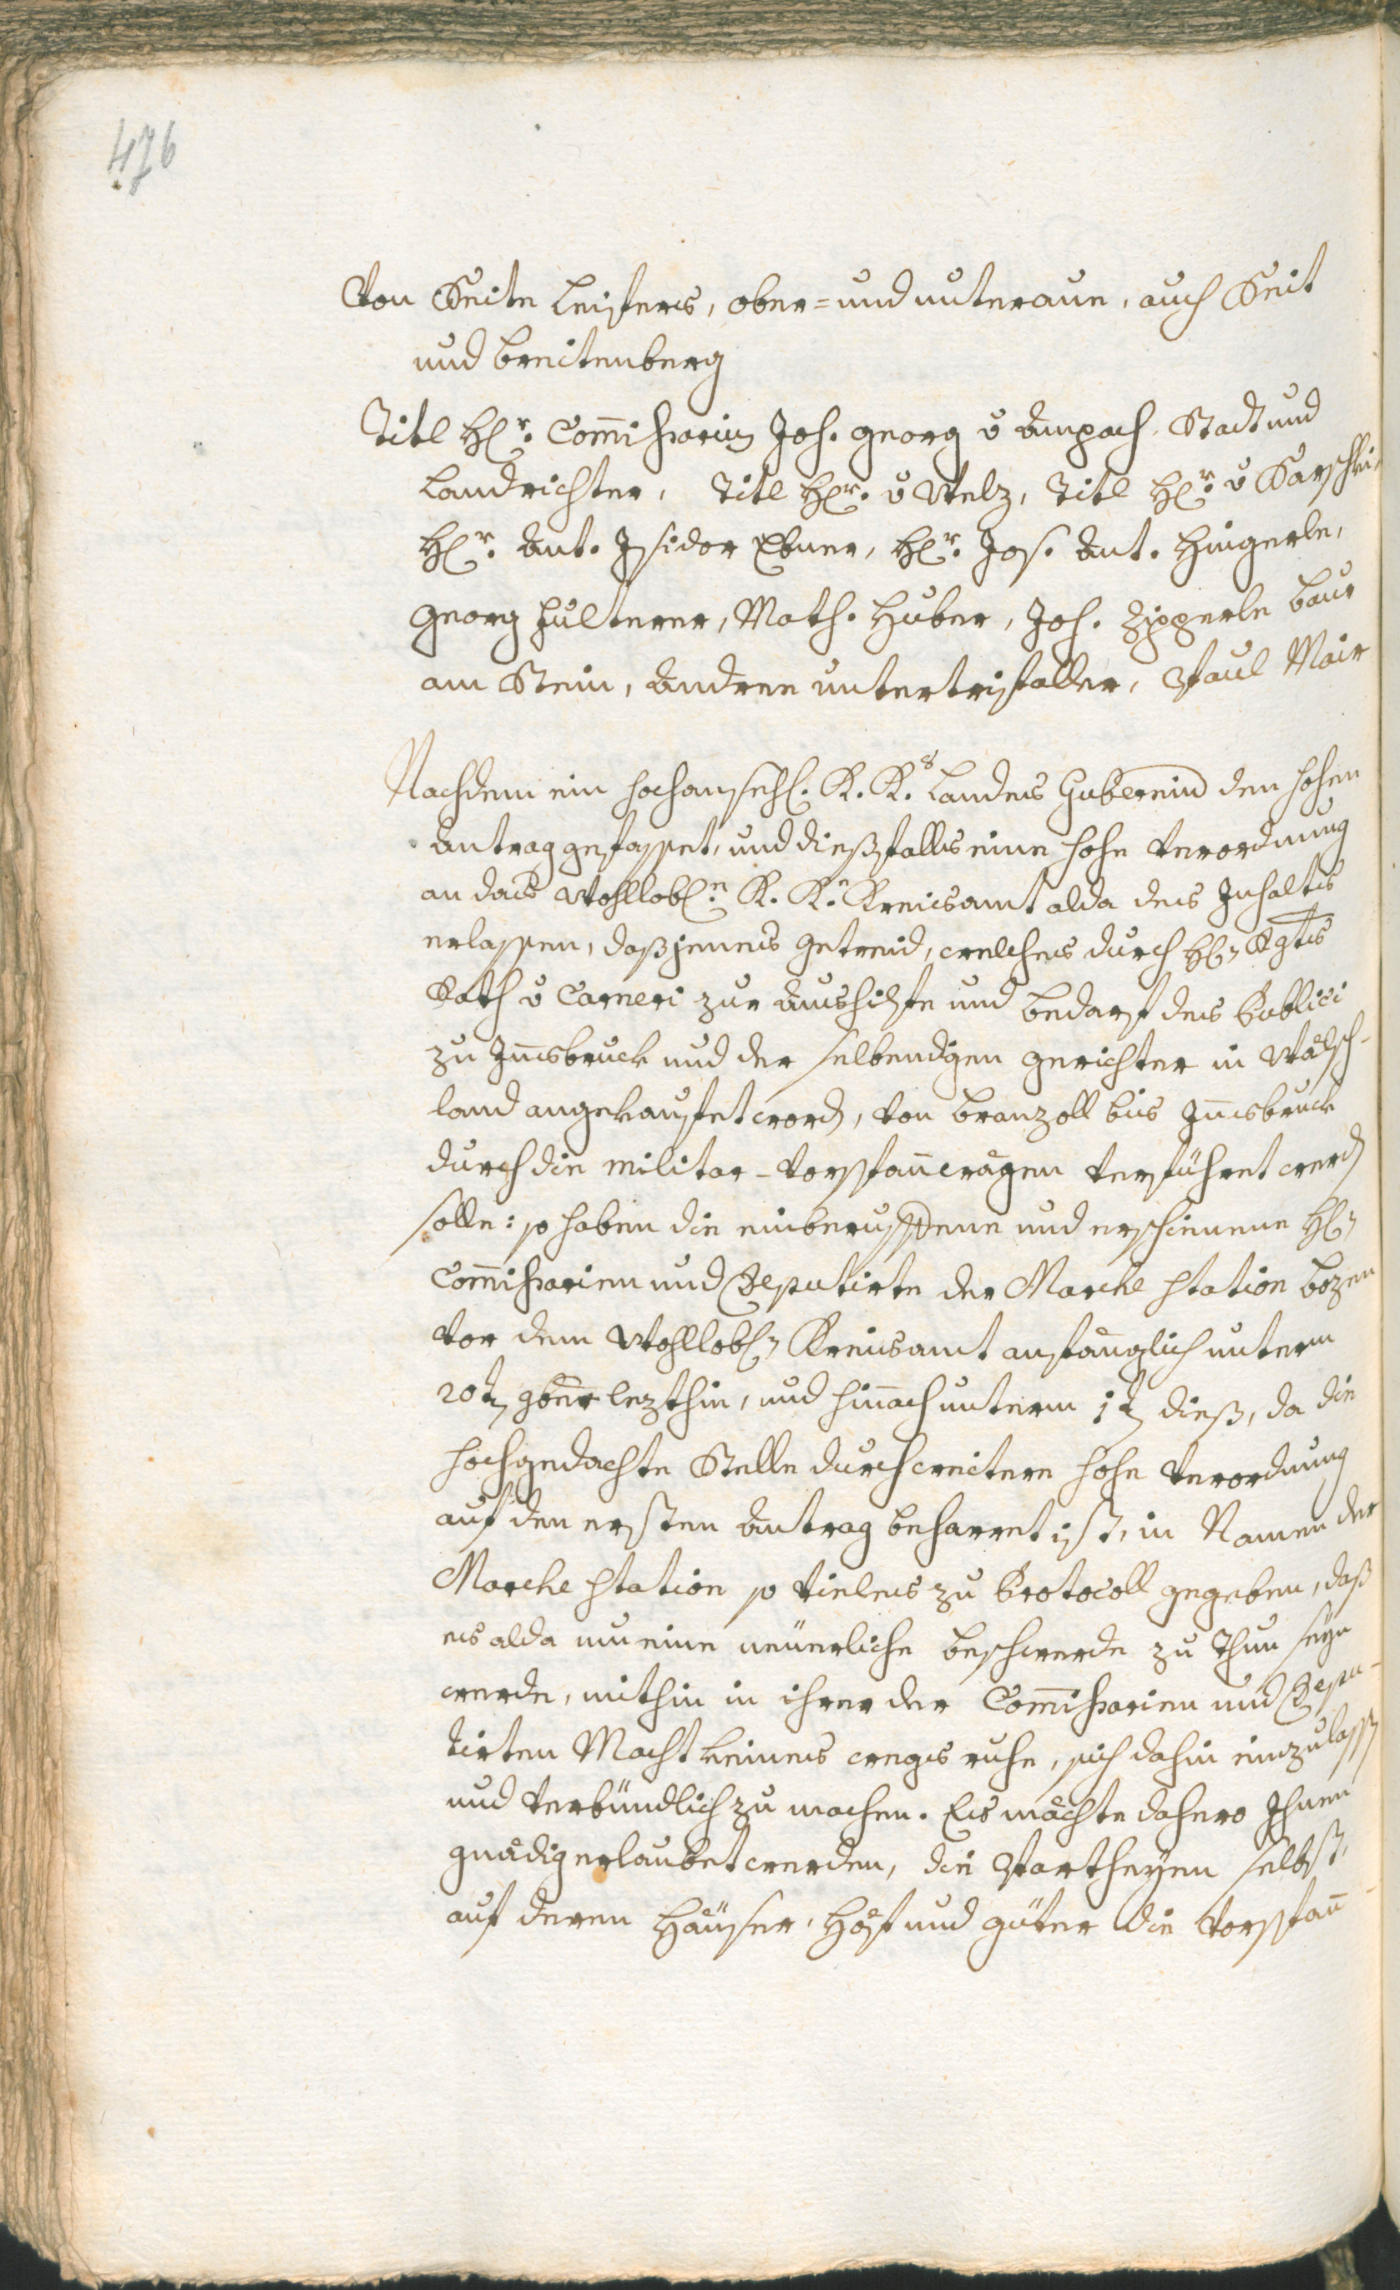 476
Von Seite Leifers, ober= und unteraue, auch Seit
und breitenberg
Titl H͞r. Com̅issarius Joh. georg v Ampach, Stadt und
Landrichter, Titl H͞r. v Welz, Titl H͞r. v
H͞r. Ant. Isidor Ebner, H͞r. Jos. Ant. Hingerle,
georg Hulterer, Math. Huber, Joh. Zipperle baur
am Stein, Andree untertrifaller, Paul Mair
Nachdem ein hochansehl. K. K.s Landes Gubernium den hohen
Antrag gefasset, und diessfalls eine hohe Verordnung
an das Wohllobl.n K. K.n Kreisamt alda des Inhaltes
erlassen, dass jenes getreid, welches durch H
Rath v Carneri zur Aushilfe und bedarf des Publici
zu In̅sbruck und der selbendigen gerichter in Wälsch-
land angekaufet word, von branzoll bis In̅sbruck
durch die militar-Vorspan̅wägen verführet werd
solle: so haben die einberuffene und erschienene H
Com̅issarien und Deputirte der Marche station bozen
vor dem Wohllobl Kreisamt anfänglich unterm
20t lezthin, und hinnach unterm 1t diess, da die
hochgedachte Stelle durch weitere hohe Verordnung
auf den ersten Antrag beharret ist, in Namen der
Marche station so vieles zu Protocoll gegeben, dass
es alda um eine neüerliche beschwerde zu thun seye
werde, mithin in ihrer der Com̅issarien und Depu-
tirten Macht keines wegs ruhe, sich dahin einzulass
und verbündlich zu machen. Es möchte dahero Ihnen
gnädig erlaubet werden, die Partheyen selbst,
auf deren Häuser, Höf und güter die Vorspan̅-